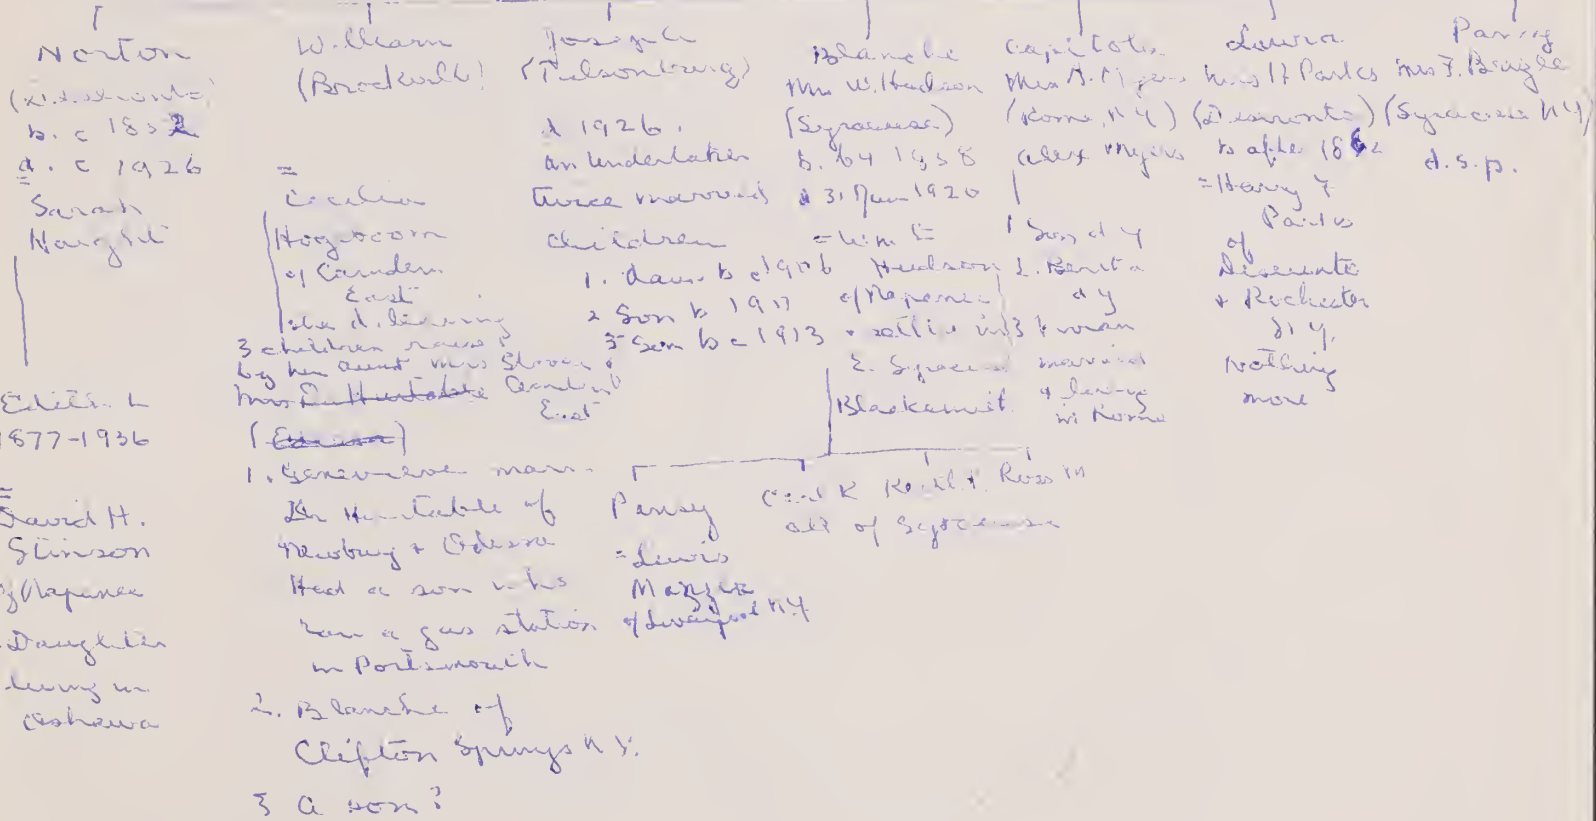 Norton
b. c 1852
d. c 1926
=
Sarah
Haight
Edith L
1877-1936
=
David H.
Stinson
of Napanee
Daughter
living in
Oshawa
William
(Brockville)
=
Cecelia
Hogeboom
of Camden
East
she d. leaving
3 children raised
by her aunt Mrs Stover
Mrs Dr Huntable Camden
East
1. Genevieve marr.
Dr Huntable of
Newburg + Odessa
Had a son who
ran a gas station
in Portsmouth
2. Blanche of
Clifton Springs N Y.
3 a son?
Joseph
(Tillsonburg)
d 1926.
an undertaker
twice married
children
1. daur b c 1906
2 Son b 1911
3 Son b c 1913
Blanche
Mrs W. Hudson
(Syracuse)
b. 64 1858
d 31 Mar 1920
= Wm E
Hudson
of Napanee
+ settled in
E. Syracuse
Blacksmith
Pansy
= Lewis
of Liverpool N.Y.
Cecil K Keith H. Ross M
all of Syracuse
Capitola
Mrs A. Myers
(Rome, N Y)
Alex Myers
1 Son d y
2. Benita
d y
3 Vivian
married
+ living
in Rome
Laura
Mrs H Parks
(Deseronto)
b after 1862
= Harvey F
Parks
of
Deseronto
+ Rochester
N Y.
nothing
more
Pansy
Mrs F. Beagle
(Syracuse N Y)
d.s.p.